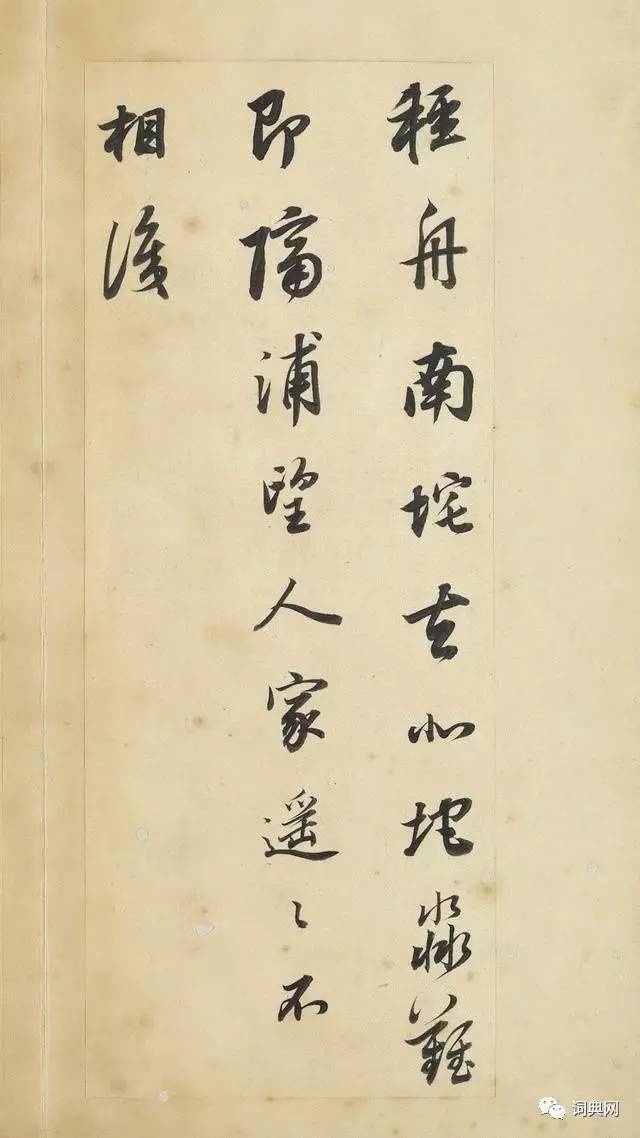 輕舟南垞去北垞淼難
即隔浦望人家遥〻不
相識
词典网